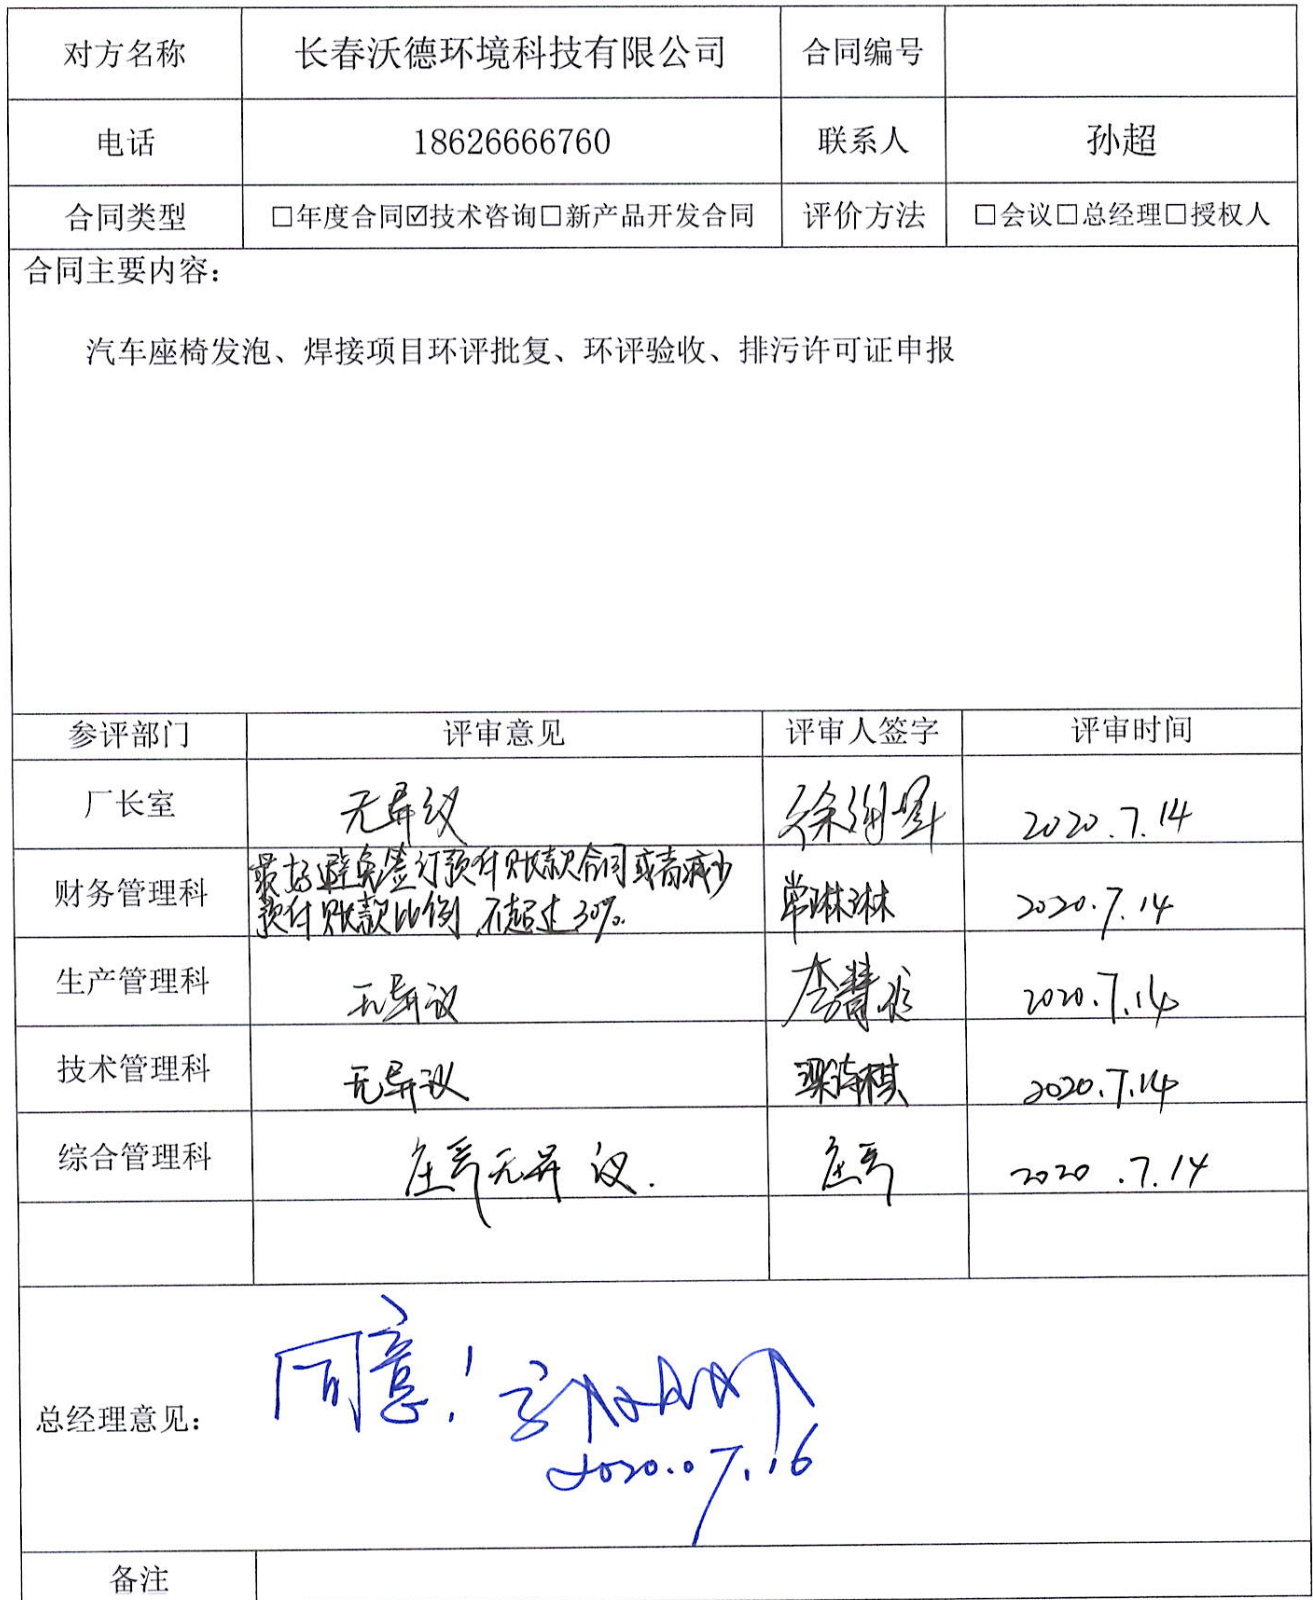 对方名称 长春沃德环境科技有限公司 合同编号
电话 18626666760 联系人 孙超
合同类型 □年度合同☑技术咨询□新产品开发合同 评价方法 □会议□总经理□授权人
合同主要内容：
汽车座椅发泡、焊接项目环评批复、环评验收、排污许可证申报
参评部门 评审意见 评审人签字 评审时间
厂长室 无异议 2020.7.14
财务管理科 最好避免签订预付账款合同或者减少
预付账款比例,不超过30%. 常琳琳 2020.7.14
生产管理科 无异议 2020.7.14
技术管理科 无异议 2020.7.14
综合管理科 无异议. 2020.7.14
同意!
总经理意见：
2020.07.16
备注